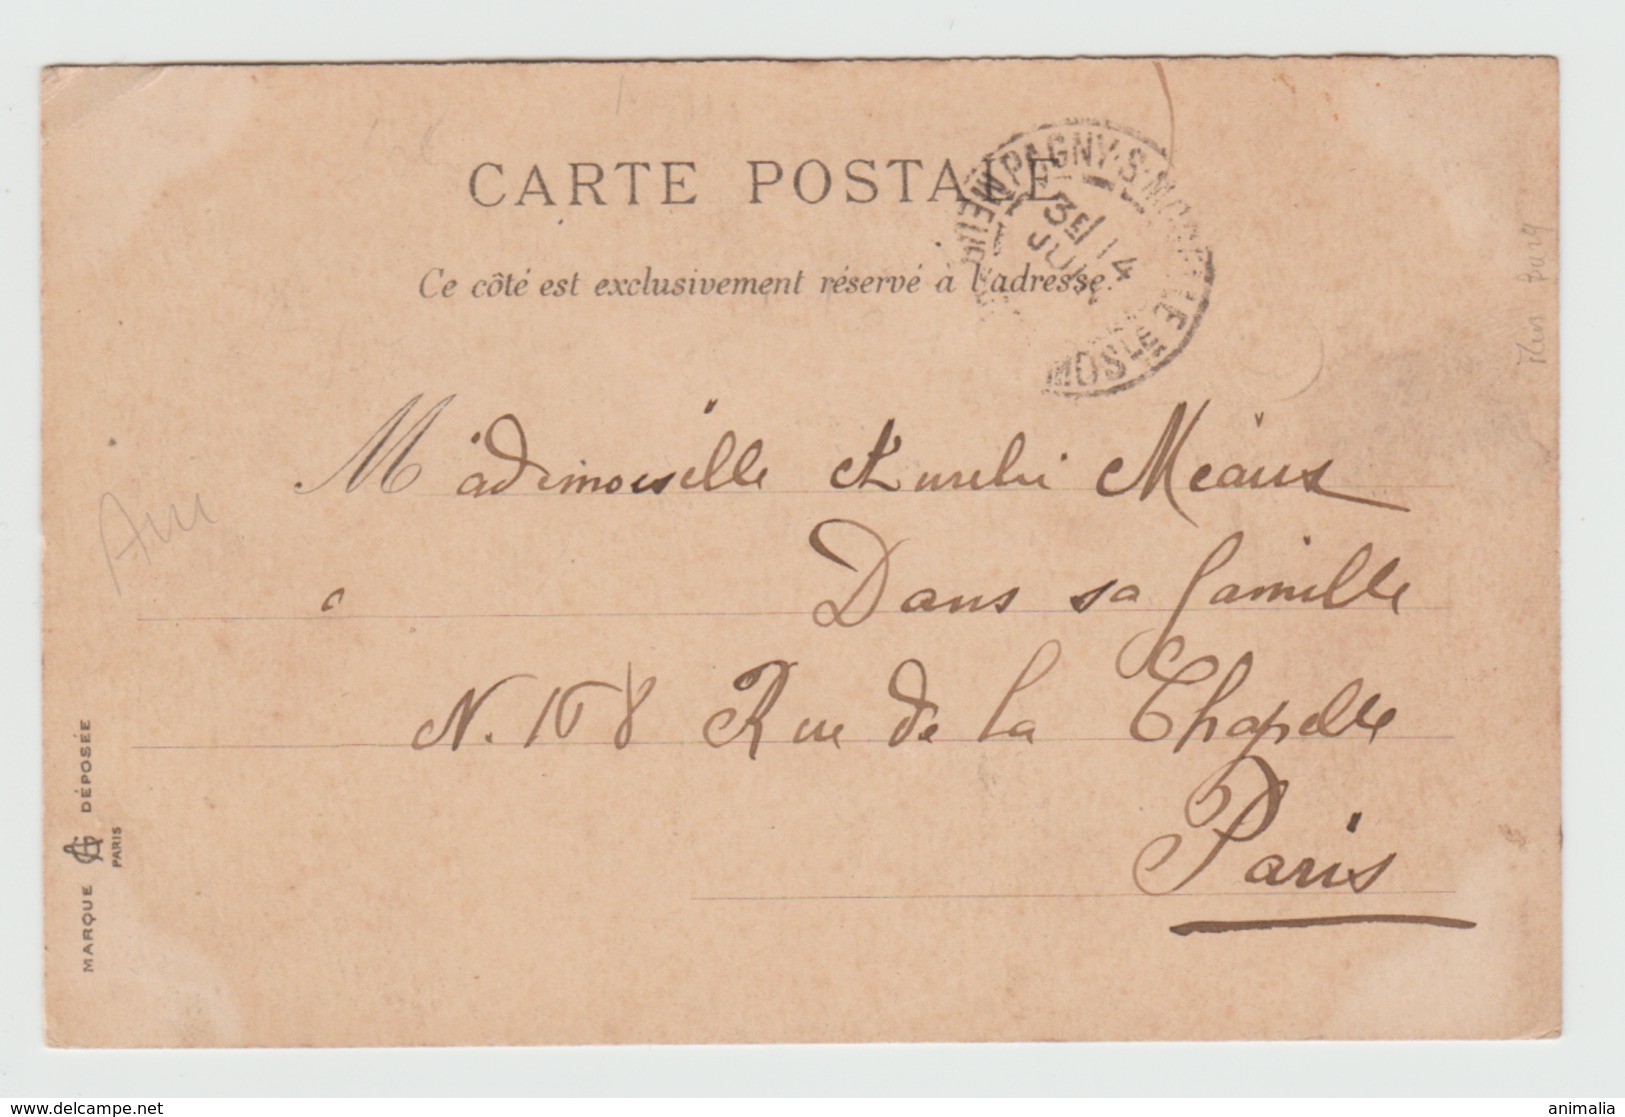 CARTE POSTALE
Ce côté est exclusivement réservé à l'adresse.
PAGNY-S-MOSELLE
3E / 14
JUIL
MEURTHE
MOSLE
Mademoiselle Aurelie Meaux
Dans sa famille
N. 108 Rue de la Chapelle
Paris
MARQUE AG DÉPOSÉE
PARIS
delcampe.net
animalia